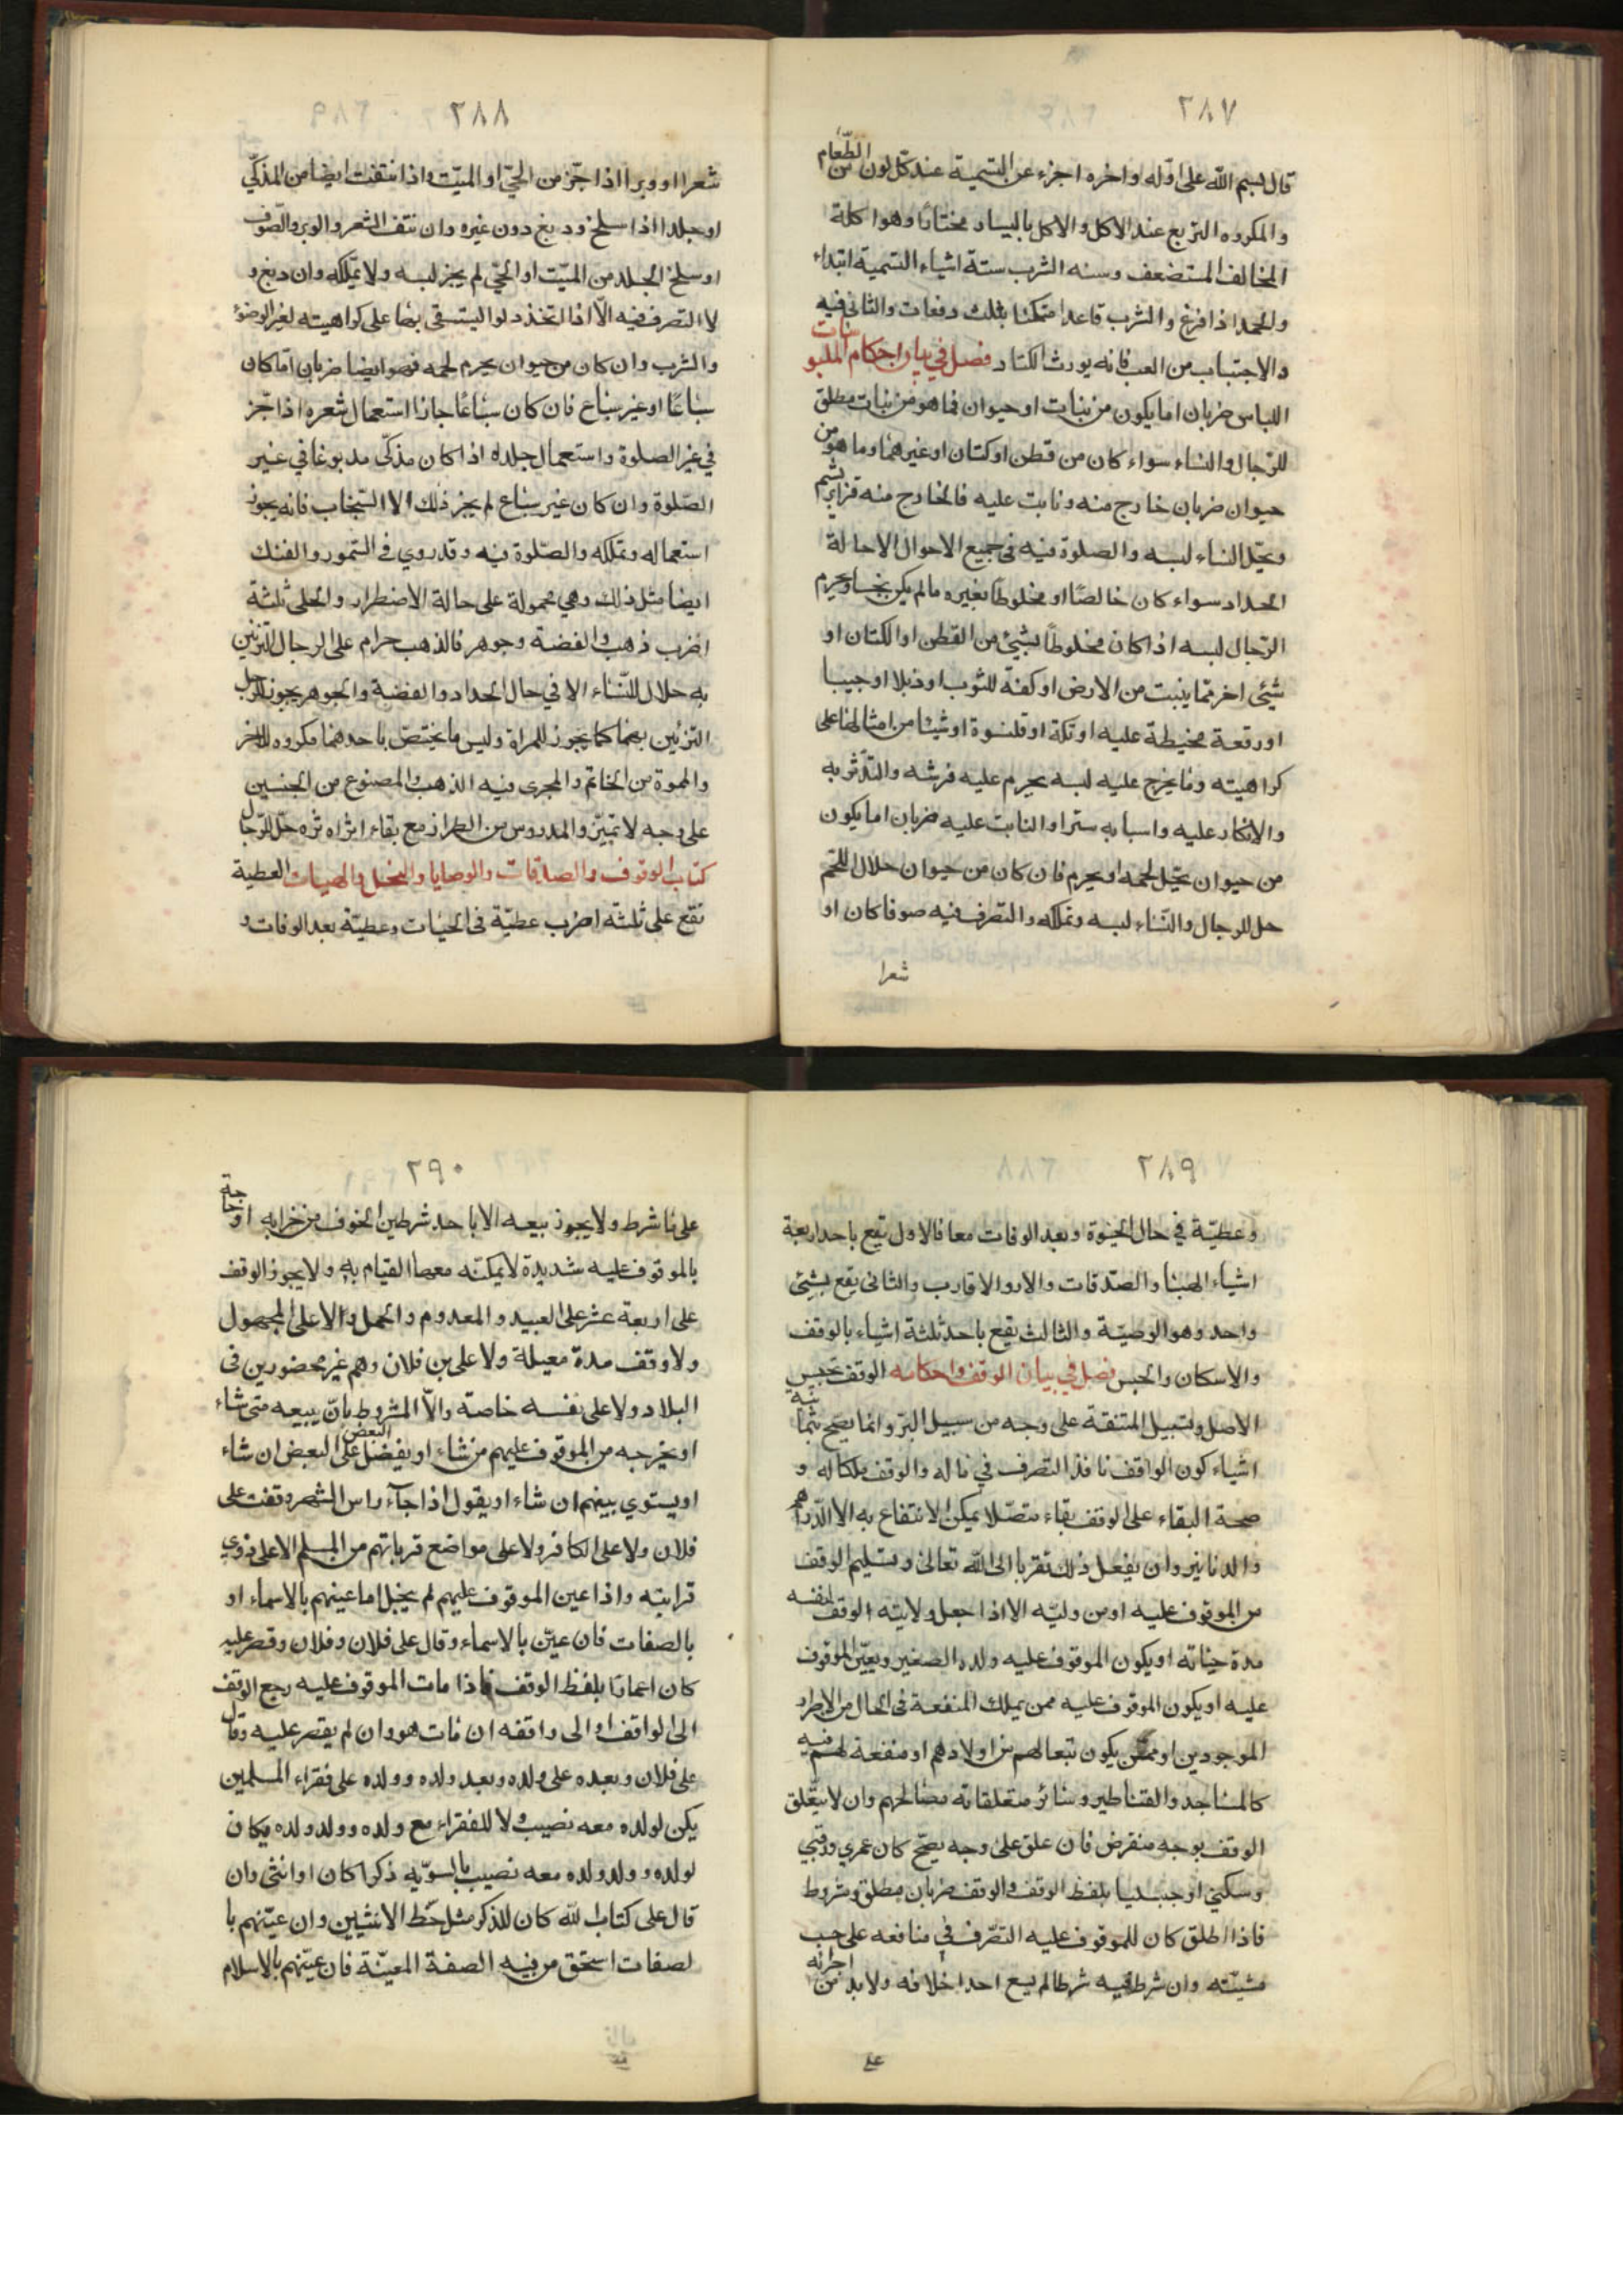 ٢٨٧
قال بسم الله على اوله واخره اجزء عن التسمية عند كل لون من الطعام
والمكروه التربع عند الاكل والاكل باليسار مختارا وهوا كلة
المخالف المستضعف وسنه الشرب ستة اشياء التسمية ابتداء
والحمد اذا فرغ والشرب قاعدا متمكنا بثلث دفعات والثاني فيه
والاجتباب من العب فانه يورث الكتاد فصل في بيان احكام الملبوسات
اللباس ضربان اما يكون من نبات او حيوان فما هو من نبات مطلق
للرجال والنساء سواء كان من قطن او كتان او غيرهما وما هو من
حيوان ضربان خارج منه ونابت عليه فالخارج منه قزابريشم
ويحل النساء لبسه والصلوة فيه في جميع الاحوال الا حالة
الحداد سواء كان خالصا او مخلوطا بغيره ما لم يكن نجسا ويحرم
الرجال لبسه اذا كان مخلوطا بشيئ من القطن او الكتان او
شيئ اخر مما ينبت من الارض او كفة للثوب او ذيلا او جيبا
او رقعة مخيطة عليه او تكة او قلنسوة او شيئا من امثالها على
كراهيته وما يخرج عليه لبسه يحرم عليه فرشه والتدثر به
والاتكاء عليه واسبابه سترا والنابت عليه ضربان اما يكون
من حيوان يحل لحمه او يحرم فان كان من حيوان حلال اللحم
حل للرجال والنساء لبسه وتملكه والتصرف فيه صوفا كان او
شعرا
٢٨٨
شعرا او وبرا اذا جز من الحي او الميت واذا نتفت ايضا من المذكي
او جلدا اذا سلخ ودبغ دون غيره وان نتف الشعر والوبر والصوف
او سلخ الجلد من الميت او الحي لم يجز لبسه ولا تملكه وان دبغ و
لا التصرف فيه الا اذا اتخذ دلوا ليستقى بها على كراهيته لغير الوضوء
والشرب وان كان من حيوان يحرم لحمه فهو ايضا ضربان اما كان
سباعا او غير سباع فان كان سباعا جاز استعمال شعره اذا جز
في غير الصلوة واستعمال جلده اذا كان مذكى مدبوغا في غير
الصلوة وان كان غير سباع لم يجز ذلك الا السنجاب فانه يجوز
استعماله وتملكه والصلوة فيه وقد روي في السمور والفنك
ايضا مثل ذلك وهي محمولة على حالة الاضطرار والحلى ثلثة
اضرب ذهب والفضة وجوهر فالذهب حرام على الرجال التزيين
به حلال للنساء الا في حال الحداد والفضة والجوهر يجوز للرجل
التزيين بهما كما يجوز للمراة وليس ما يختص باحدهما مكروه للاخر
والمموة من الخاتم والمجرى فيه الذهب والمصنوع من الجنسين
على وجه لا تميز والمدروس من الطراز مع بقاء اثراه ثره حل للرجال
كتاب الوقوف والصدقات والوصايا والنحل والهبات العطية
تقع على ثلثة اضرب عطية في الحيات وعطية بعد الوفات و
٢٨٩
وعطية في حال الحيوة وبعد الوفات معا فالاول تقع باحد اربعة
اشياء الهبنا والصدقات والارو الاقارب والثاني يقع بشيئ
واحد وهو الوصية والثالث يقع باحد ثلثة اشياء بالوقف
والاسكان والحبس فصل في بيان الوقف واحكامه الوقف تحبيس
الاصل وتسبيل المنفقة على وجه من سبيل البر وانما يصح بثمانية
اشياء كون الواقف نافذ التصرف في ماله والوقف ملكا له و
صحة البقاء على الوقف بقاء متصلا يمكن الانتفاع به الا الدراهم
والدنانير وان يفعل ذلك تقربا الى الله تعالى وتسليم الوقف
من الموقوف عليه او من وليه الا اذا جعل ولايته الوقف لنفسه
مدة حياته او يكون الموقوف عليه ولده الصغير ويعين الموقوف
عليه او يكون الموقوف عليه ممن يملك المنفعة في الحال من الافراد
الموجودين او ممن يكون تبعا لهم من اولادهم او منفعة لهم فيه
كالمساجد والقناطير وسائر متعلقاته مصالحهم وان لا يتعلق
الوقف بوجه منقرض فان علق على وجه يصح كان عمري ورقبي
وسكنى او حبسا بلفظ الوقف والوقف ضربان مطلق ومشروط
فاذا اطلق كان للموقوف عليه التصرف في منافعه على حسب
مشيته وان شرط فيه شرطا لم يسع احدا خلافه ولا بد من اجرائه
على
٢٩٠
على ما شرط ولا يجوز بيعه الا باحد شرطين الخوف من خرابه او حاجة
بالموقوف عليه شديدة لا يمكنه معها القيام به ولا يجوز الوقف
على اربعة عشر على العبيد والمعدوم والحمل والا على المجهول
ولا وقف مدة معيلة ولا على بن فلان وهم غير محضورين في
البلاد ولا على نفسه خاصة والا المشروط بان يبيعه متى شاء
او يخرجه من الموقوف عليهم من شاء او يفضل البعض على البعض ان شاء
او يستوي بينهم ان شاء او يقول اذا جآء راس الشهر وقفت على
فلان ولا على الكافر ولا على مواضع قرباتهم من المسلم الا على ذوي
قرابته واذا عين الموقوف عليهم لم يخل اما عينهم بالاسماء او
بالصفات فان عين بالاسماء وقال على فلان وفلان وقصر عليه
كان اعمارا بلفظ الوقف فاذا مات الموقوف عليه رجع الوقف
الى الواقف او الى واقفه ان مات هو وان لم يقصر عليه وقال
على فلان وبعده على ولده وبعد ولده وولده على فقراء المسلمين
يكن لولده معه نصيب ولا للفقراء مع ولده وولد ولده وكان
لولده وولد ولده معه نصيب بالسويه ذكرا كان او انثى وان
قال على كتاب الله كان للذكر مثل حظ الانثيين وان عينهم با
لصفات استحق من فيه الصفة المعينة فان عينهم بالاسلام